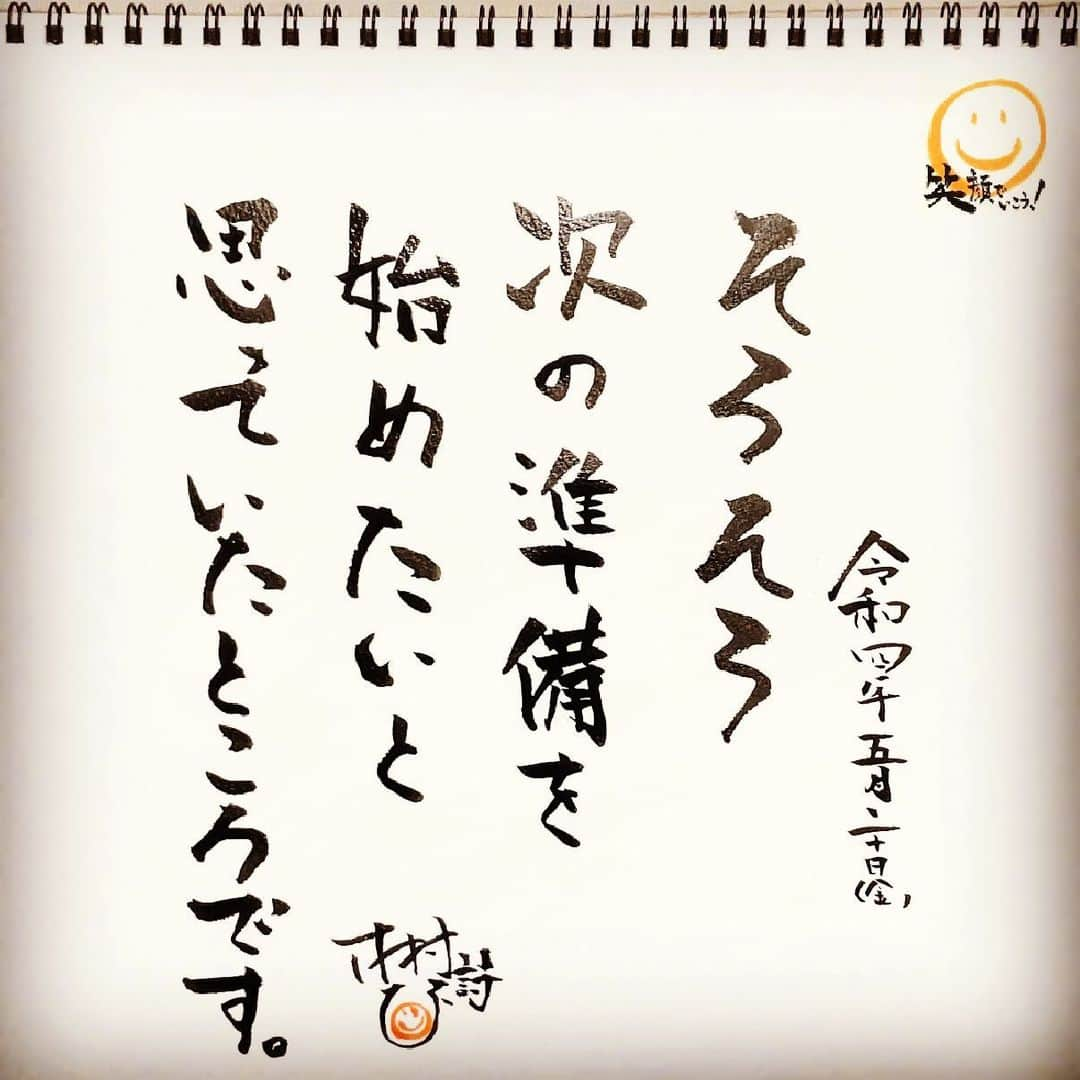 笑顔でいこう!
令和四年五月二十日(金)
そろそろ
次の準備を
始めたいと
思っていたところです。
木村
詩